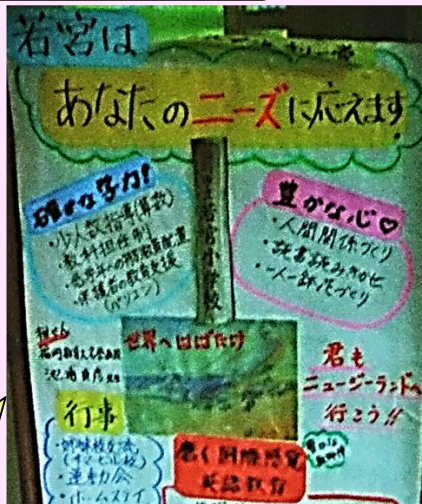 若宮は
あなたのニーズに応えます!
確かな学力!
・少人数指導(算数)
・教科担任制
・保護者の教育支援
(パソコン)
豊かな心♡
・人間関係づくり
・読書読みきかせ
・一人一鉢花づくり
若宮小学校
世界へはばたけ
君も
ニュージーランドへ
行こう!!
行事
・姉妹校交流
・運動会
・ホームステイ
磨く国際感覚
英語教育